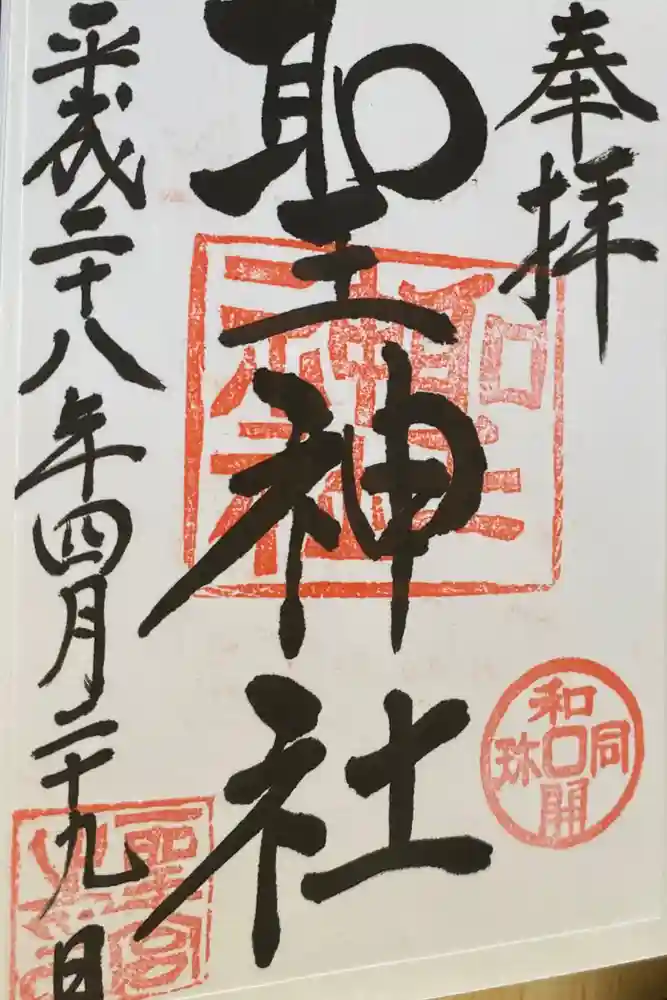 奉拝
聖神社
平成二十八年四月二十九日
聖神社
和同開珎